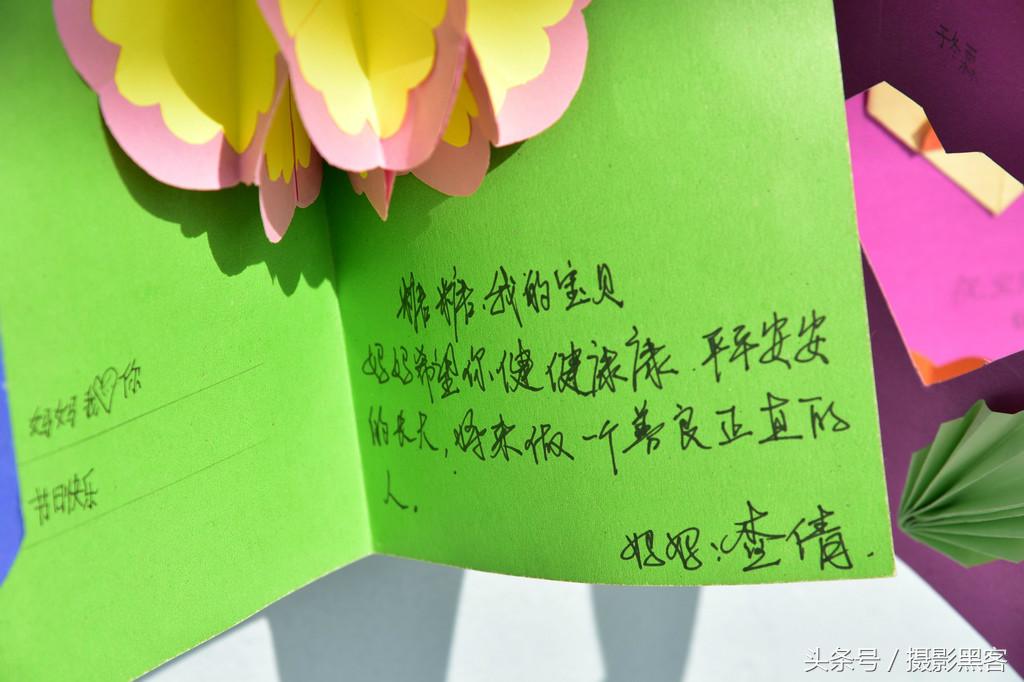 妈妈我♡你
节日快乐
糖糖,我的宝贝
妈妈希望你健健康康.平平安安
的长大,将来做一个善良正直的
人.
妈妈:查倩.
头条号 / 摄影黑客